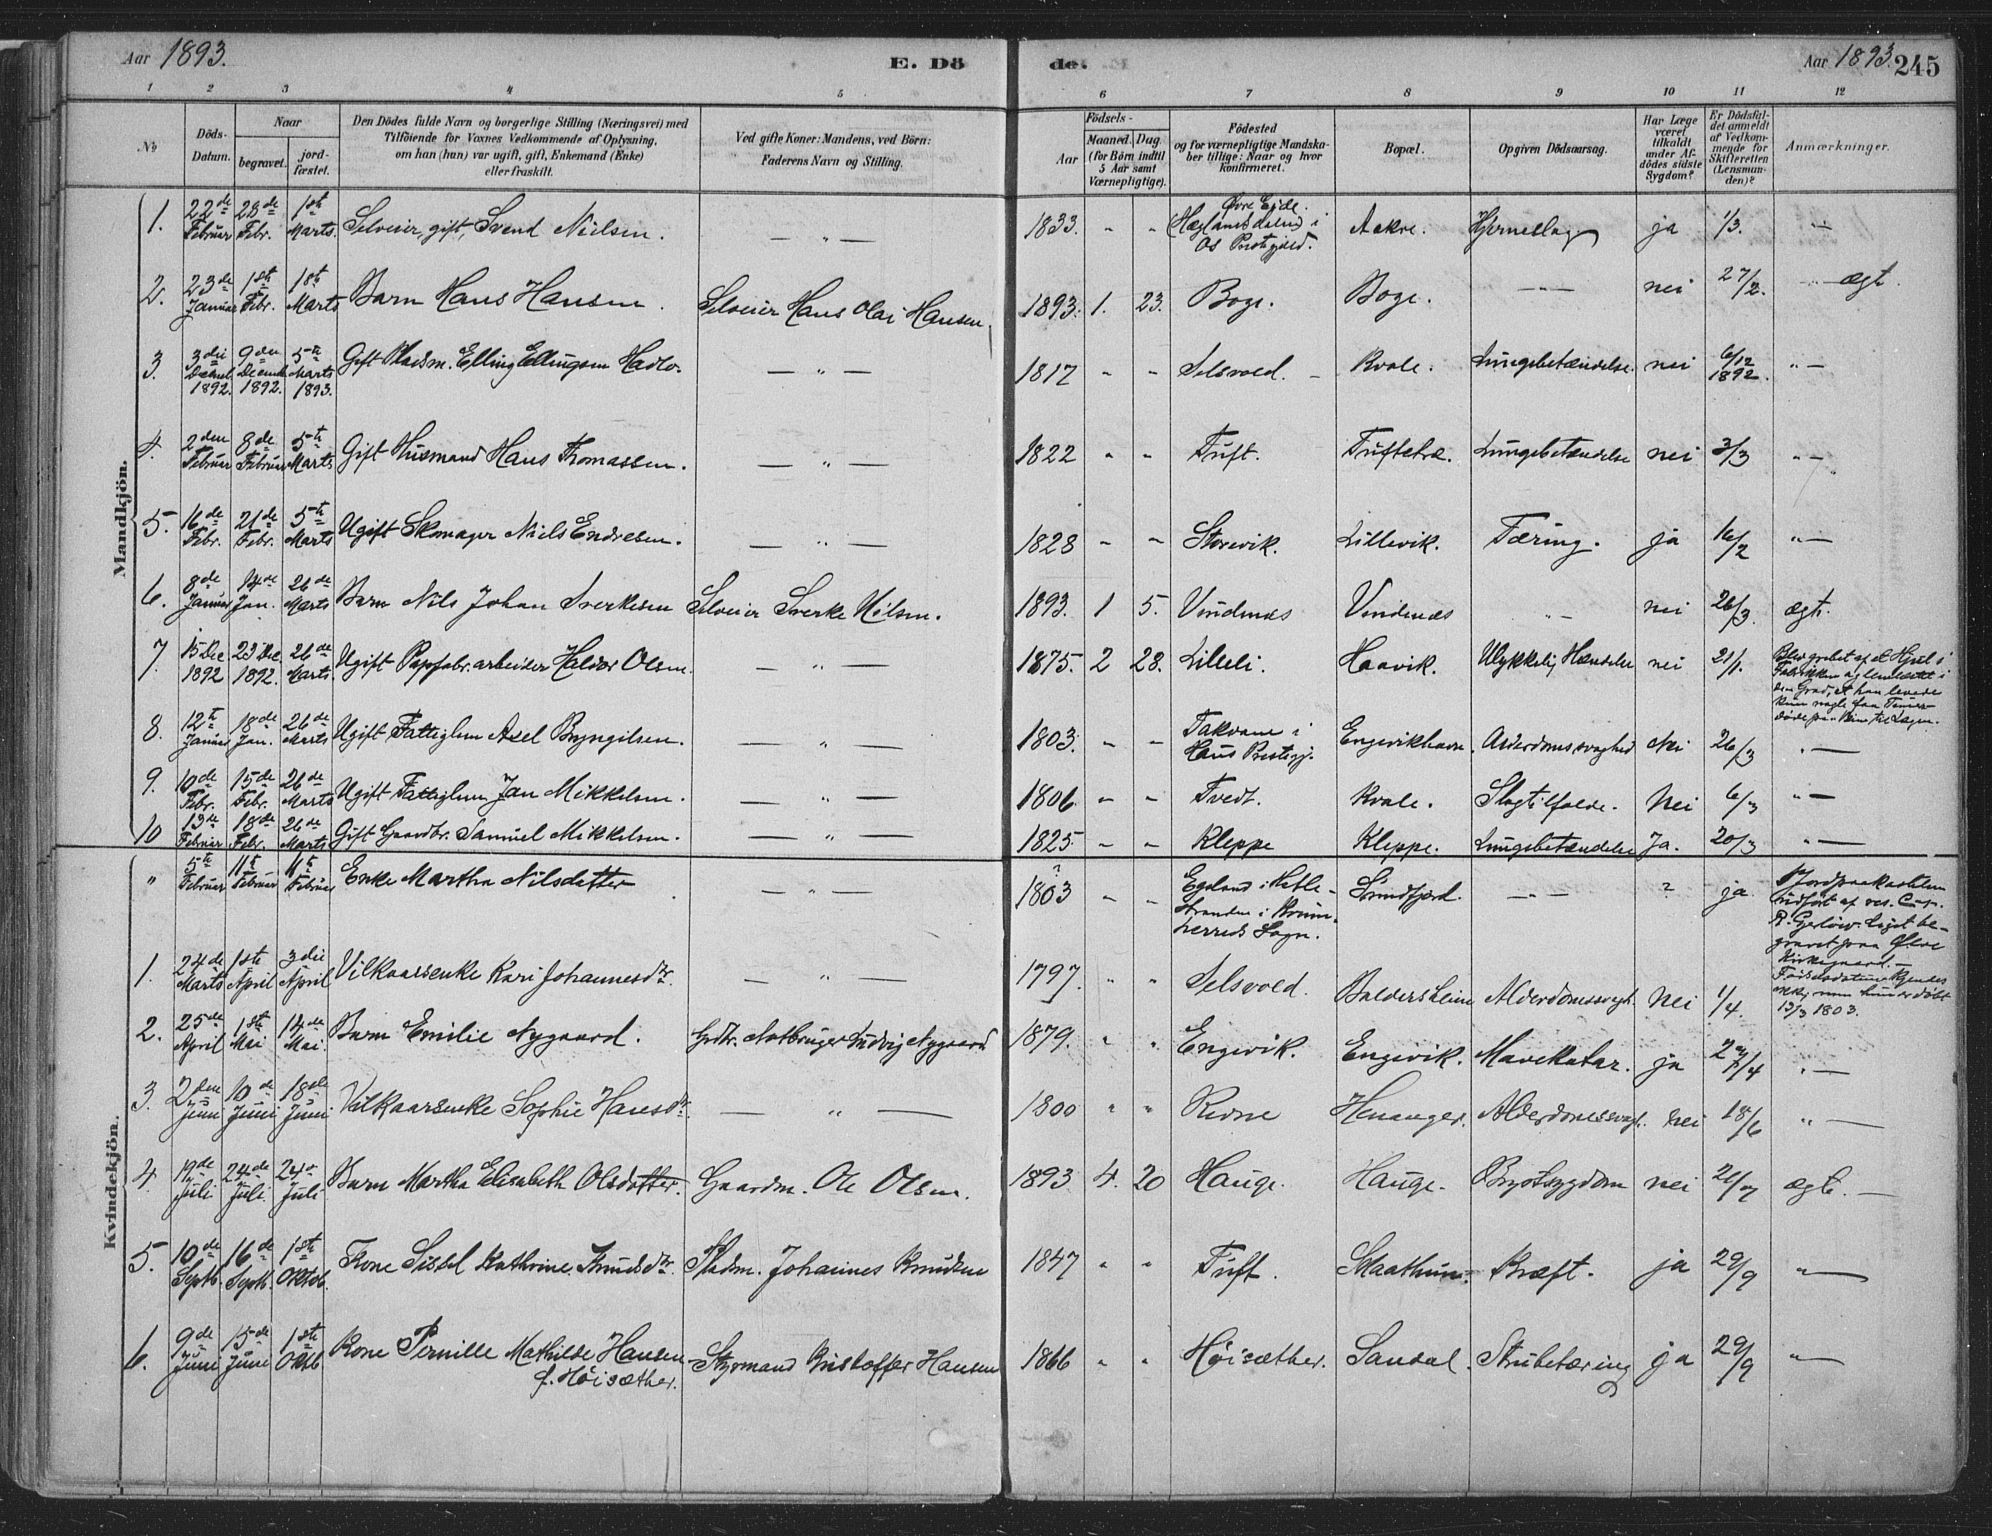 Aar 1893. E. Dö de. Aar 1893. 245
1 2 3 4 5 6 7 8 9 10 11 12
№
Döds-
Datum.
Naar
begravet. jord-
fæstet.
Den Dödes fulde Navn og borgerlige Stilling (Næringsvei) med
Tilföiende for Voxnes Vedkommende af Oplysning,
om han (hun) var ugift, gift, Enkemand (Enke)
eller fraskilt.
Ved gifte Koner: Mandens, ved Börn:
Faderens Navn og Stilling.
Födsels-
Aar Maaned. Dag.
(for Börn indtil
5 Aar samt
Værnepligtige).
Födested
og for værnepligtige Mandska-
ber tillige: Naar og hvor
konfirmeret.
Bopæl.
Opgiven Dödsaarsag.
Har Læge
været
tilkaldt
under Af-
dödes sidste
Sygdom?
Er Dödsfal-
det anmeldt
af Vedkom-
mende for
Skifteretten
(Lensman-
den)?
Anmærkninger.
Mandkjön.
1. 22de Februar 28de Febr. 1ste Marts. Selveier, gift, Svend Nielsen. — " — 1833. " " Øvre Eide (Hæglandsdalen) i Os Prestegjeld. Aakre. Hjerneslag ja 1/3. "—
2. 23de Januar 1ste Febr. 18te Marts Barn Hans Hansen. Selveier Hans Olai Hansen. 1893. 1. 23. Boge. Boge. — " — nei 27/2. ægt.
3. 3die Decmb. 1892. 9den Decemb. 1892. 5te Marts 1893. Gift Pladsm. Elling Ellingsen Hadlo. — " — 1817 " " Selsvold. Kvale. Lungebetændelse. nei 6/12 1892. "—
4. 2den Februar 8de Februar 5te Marts Gift Husmand Hans Thomassen. — " — 1822 " " Tuft. Tuftetræ. Lungebetændelse nei 3/3 "—
5. 16de Febr. 21de Febr. 5te Marts Ugift Skomager Niels Endresen. — " — 1828 " " Storevik. Lillevik. Tæring. ja 16/2 "—
6. 8de Januar 14de Jan. 26de Marts Barn Nils Johan Sverkesen Selveier Sverke Nilsen. 1893. 1 5. Vindenæs Vindenæs " — nei 26/3 ægte.
7. 15 Dec 1892 23 Dec. 1892. 26de Marts. Ugift Papfabr.arbeider Haldor Olsen. — " — 1875. 2 28. Lilleli. Haavik. Ulykkelig Hændelse nei 21/1. Blev grebet af et Hjul i
Fabrikken og lemlæstet i
den Grad, at han levede
kun nogle faa Timer.
8. 12te Januar 18de Jan. 26de Marts Ugift Fattiglem Axel Bryngilsen. — " — 1803. " " Takvam i Haus Prestegj. Engevikhavn. Alderdomssvaghed Nei 26/3 "—
9. 10de Febr. 15de Febr. 26de Marts Ugift Fattiglem Jan Mikkelsen. — " — 1806 " " Tvedt. Kvale. Slagtilfælde. Nei 6/3 "—
10 13de Februar 18de Febr. 26de Marts Gift Gaardbr. Samuel Mikkelsen. — " — 1825. " " Kleppe Kleppe. Lungebetændelse Ja. 20/3 "—
Kvindekjön.
" 5te Februar 11te Februar 11te Februar Enke Martha Nilsdatter — " — 1803 ? " " i Kvinn-
herreds Sogn. Sundfjord. — " — ? ja. Jordpaakastelsen
udført af res. Cap.
R. Gerlow. Liget be-
gravet paa Ølve
Kirkegaard.—
Fødselsdatum kjendes
ikke, men hun er døbt
13/3 1803.
1. 24de Marts 1ste April 3die April Vilkaarsenke Kari Johannesdtr. — " — 1797. " " Selsvold. Baldersheim Alderdomssvagh. Nei 1/4.
2. 25de April 1ste Mai 14de Mai. Barn Emilie Nygaard. Grdbr. Notbruger Ludvig Nygaard 1879. " " Engevik. Engevik. Mavekatar. ja 27/4 "—
3. 2den Juni 10de Juni 18de Juni Vilkaarsenke Sophie Hansdtr. — " — 1800 " " Revne Henanger. Alderdomssvagh. nei 18/6 "—
4. 19de Juli 24de Juli 24de Juli Barn Martha Elisabeth Olsdatter. Gaardm. Ole Olsen. 1893 4. 20 Hauge. Hauge. Brystsygdom nei 26/7 ægte. —
5. 10de Septb. 16de Septb. 1ste Oktob. Kone Sissel Kathrine Knudsdtr. Pladsm. Johannes Knudsen 1847 " " Tuft. Maathun. Kræft. ja 29/9 "—
6. 9de Juni 15de Juni 1ste Oktb Kone Pernille Mathilde Hansen f. Høisæther. Styrmand Kristoffer Hansen 1866 " " Høisæther. Sandal. Strubetæring ja 29/9 "—